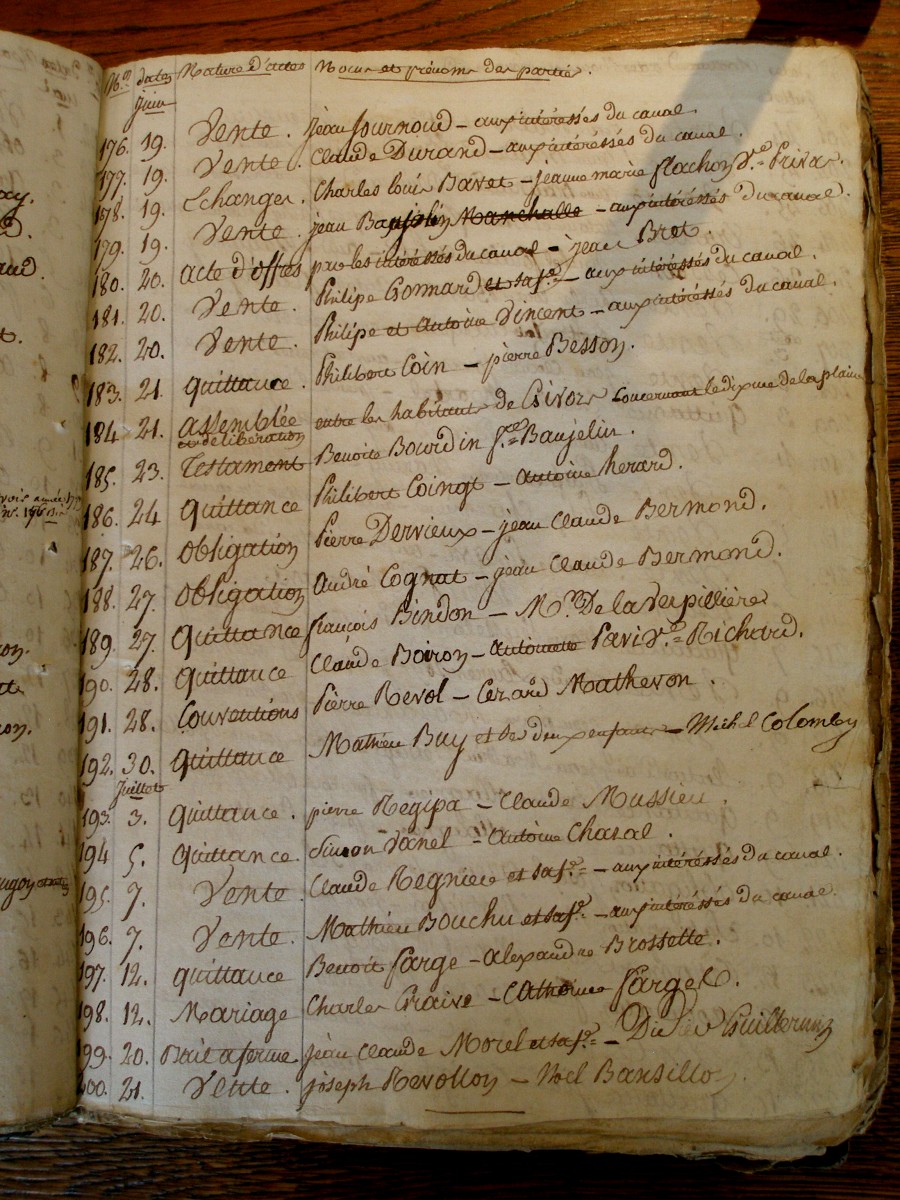 Nos dates Nature d'actes Noms et prénoms des parties.
Juin
176. 19. Vente. jean Journoud - aux intéressés du canal
177. 19. Vente. Claude Durand - aux intéressés du canal.
178. 19. Echanges. Charles louis Bavet - jeanne marie flachon Ve. Privas.
179. 19. Vente. jean Banjolin - aux intéressés du canal.
180. 20. acte d'offres par les intéressés du canal - jean Bret.
181. 20. Vente. Philipe Gonnard et sa fe. - aux intéressés du canal.
182. 20. Vente. Philipe et Antoine Vincent - aux intéressés du canal.
183. 21. quittance. Philibert Coin - pierre Besson.
184 21. assemblée entre les habitants de Givors concernant le dixme de la plaine
et déliberation
185. 23. Testament Benoite Bourdin fe. Baujelin.
186. 24 Quittance Philibert Coingt - Antoine herard.
187. 26. Obligation Pierre Dervieux - jean Claude Bermond.
188. 27. Obligation André Cognat - jean Claude Bermond.
189. 27. Quittance francois Bindon - Mr. De la Verpillière
190. 28. Quittance Claude Boiron - Antoinette Ve. Richard.
191. 28. Conventions Pierre Revol - Cezard Mathevon.
192. 30. Quittance Mathieu Buy et ses deux enfans - Michel Colomby
Juillet
193. 3. quittance. pierre Regipa - Claude Mussieu.
194 5. quittance. Simon Vanel - Antoine Chazal.
195. 7. Vente Claude Regniere et sa fe. - aux intéressés du canal.
196. 7. Vente. Mathieu Bouchu et sa fe. - aux intéressés du canal.
197. 12. quittance Benoit farge - alexandre Brossette.
198. 12. Mariage Charles - farget.
199. 20. Bail a ferme jean Claude Morel et sa fe. -
200. 21. Vente. joseph Revollon - Noel